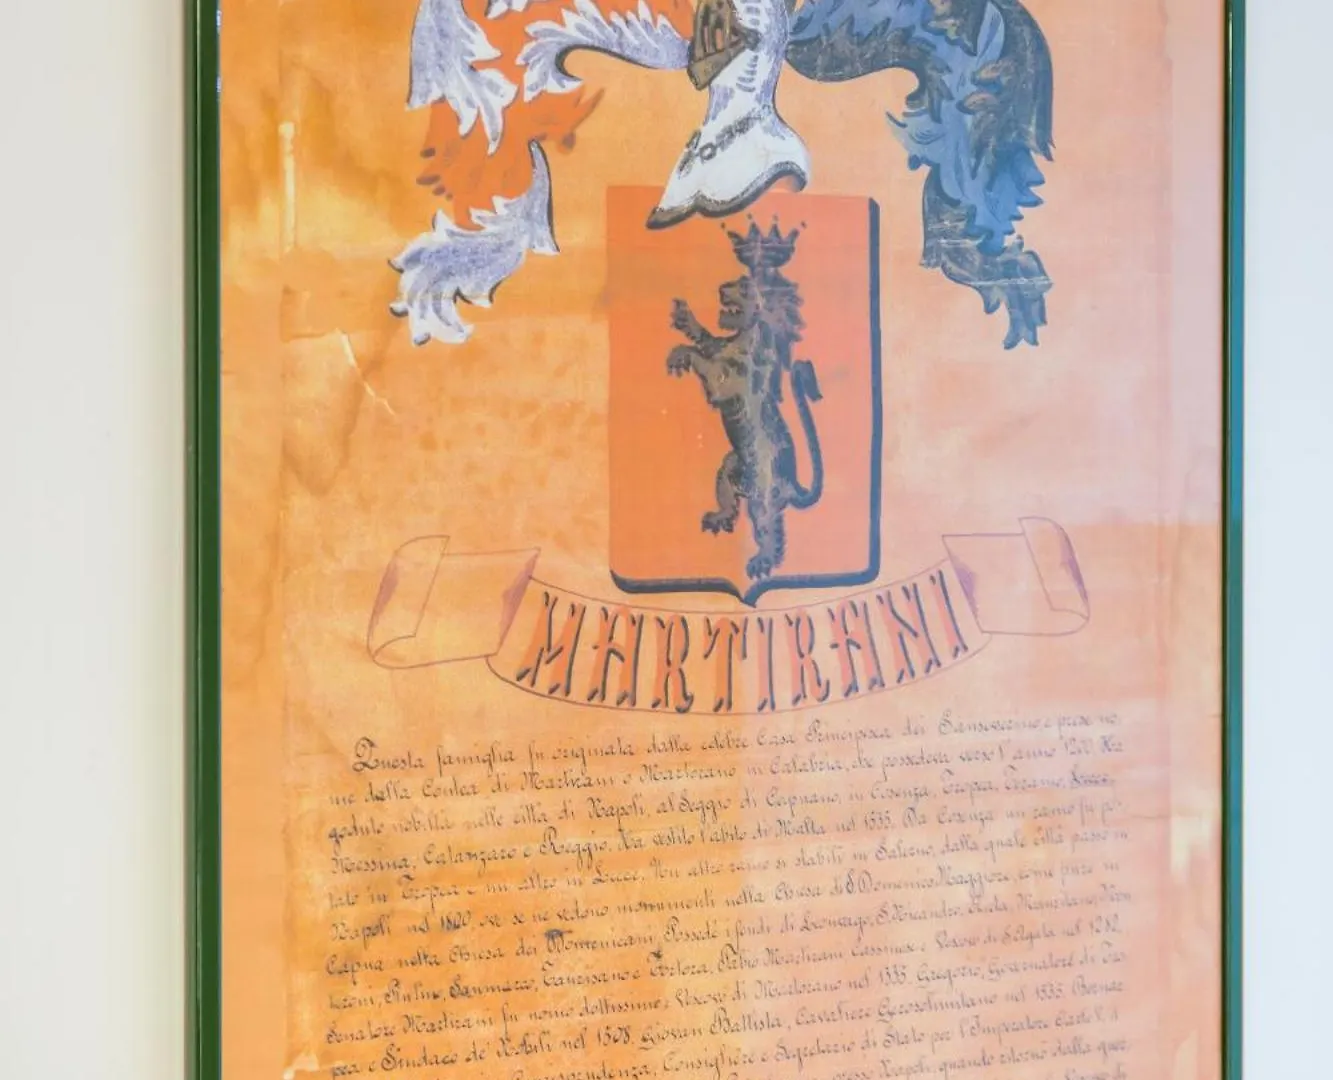 MARTIRANI
Questa famiglia fu originata dalla celebre Casa Principesca dei Sanseverino, e prese no-
me dalla Contea di Martirani o Martorano in Calabria, che possedeva verso l'anno 1200. Ha
goduto nobiltà nelle città di Napoli, al Seggio di Capuano, in Cosenza, Tropea, Teramo, Lecce,
Messina, Catanzaro e Reggio. Ha vestito l'abito di Malta nel 1535. Da Cosenza un ramo fu por-
tato in Tropea e un altro in Lecce. Un altro ramo si stabilì in Salerno, dalla quale città passò in
Napoli nel 1800, ove se ne vedono monumenti nella Chiesa di S. Domenico Maggiore, come pure in
Capua nella Chiesa dei Domenicani. Possedè i feudi di S. Nicandro,
Sammarco, Taurisano e Fabio Martirani Cassinese e Vescovo di S. Agata nel 1282,
Senatore Martirani fu uomo dottissimo; Vescovo di Martorano nel 1535. Gregorio, Governatore di Tro-
pea e Sindaco de' Nobili nel 1508. Giovan Battista, Cavaliere Gerosolimitano nel 1535. Bernar-
Consigliere e Segretario di Stato per l'Imperatore Carlo V, il
presso Napoli, quando ritornò dalla guer-